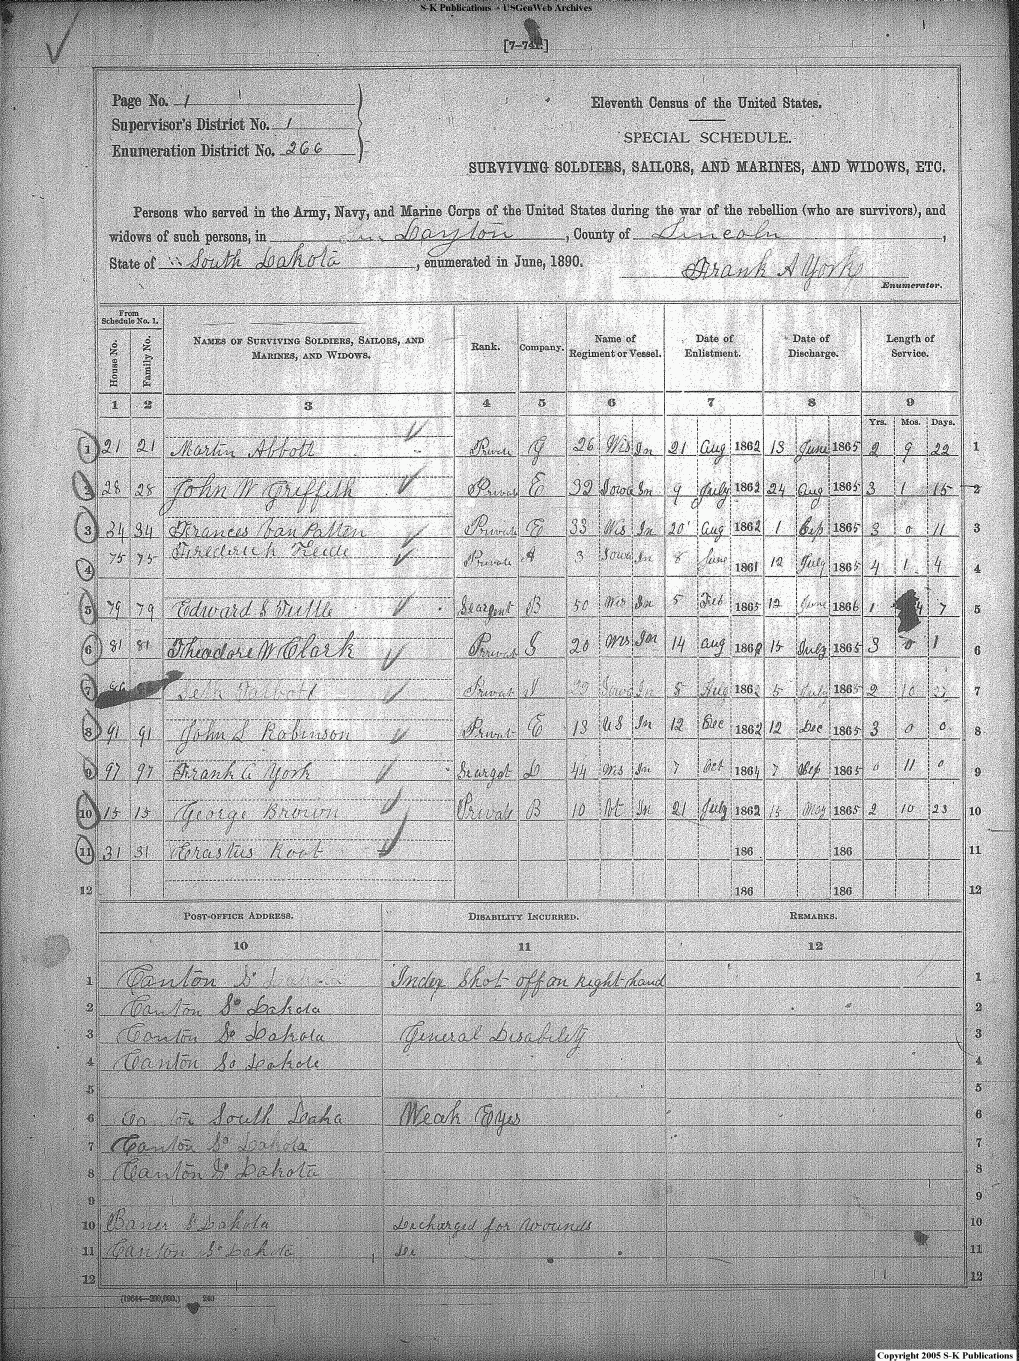 S-K Publications - USGenWeb Archives
Page No. 1
Supervisor's District No. 1
Enumeration District No. 266
Eleventh Census of the United States.
SPECIAL SCHEDULE.
SURVIVING SOLDIERS, SAILORS, AND MARINES, AND WIDOWS, ETC.
Persons who served in the Army, Navy, and Marine Corps of the United States during the war of the rebellion (who are survivors), and
widows of such persons, in Dayton, County of Lincoln,
State of South Dakota, enumerated in June, 1890. Frank A York
Enumerator.
From Schedule No. 1.
House No. Family No. NAMES OF SURVIVING SOLDIERS, SAILORS, AND MARINES, AND WIDOWS. Rank. Company. Name of Regiment or Vessel. Date of Enlistment. Date of Discharge. Length of Service.
1 2 3 4 5 6 7 8 9
Yrs. Mos. Days.
1 21 21 Martin Abbott Private G 26 Wis In 21 Aug 1862 13 June 1865 2 9 22 1
2 28 28 John W Griffith Privat E 32 Iowa In 9 July 1862 24 Aug 1865 3 1 15 2
3 34 34 Frances Van Patten Private E 33 Wis In 20 Aug 1862 1 Sep 1865 3 0 11 3
4 75 75 Frederick Private A 3 Iowa In 8 June 1861 12 July 1865 4 1 4 4
5 79 79 Edward S Tuttle Seargent B 50 Wis In 5 Feb 1865 12 June 1866 1 4 7 5
6 81 81 Theodore W Clark Privat 20 Wis Inn 14 Aug 1862 15 July 1865 3 0 1 6
7 Seth Talbott Privat Iowa In 5 Aug 1862 5 1865 2 10 7
8 91 91 John S Robinson Privat E 13 US In 12 Dec 1862 12 Dec 1865 3 0 0 8
9 97 97 Frank A York Seargt D 44 Wis In 7 Oct 1864 7 Sep 1865 0 11 0 9
10 15 15 George Brown Private B 10 In 21 July 1862 15 May 1865 2 10 23 10
11 31 31 Erastus Root 186 186 11
12 186 186 12
POST-OFFICE ADDRESS. DISABILITY INCURRED. REMARKS.
10 11 12
1 Canton So Dakota Index Shot off on right hand 1
2 Canton So Dakota 2
3 Canton So Dakota General Disability 3
4 Canton So Dakota 4
5 5
6 Canton South Daka Weak Eyes 6
7 Canton So Dakota 7
8 Canton So Dakota 8
9 9
10 S Dakota Decharged for wounds 10
11 Canton So Dakota 11
12 12
Copyright 2005 S-K Publications